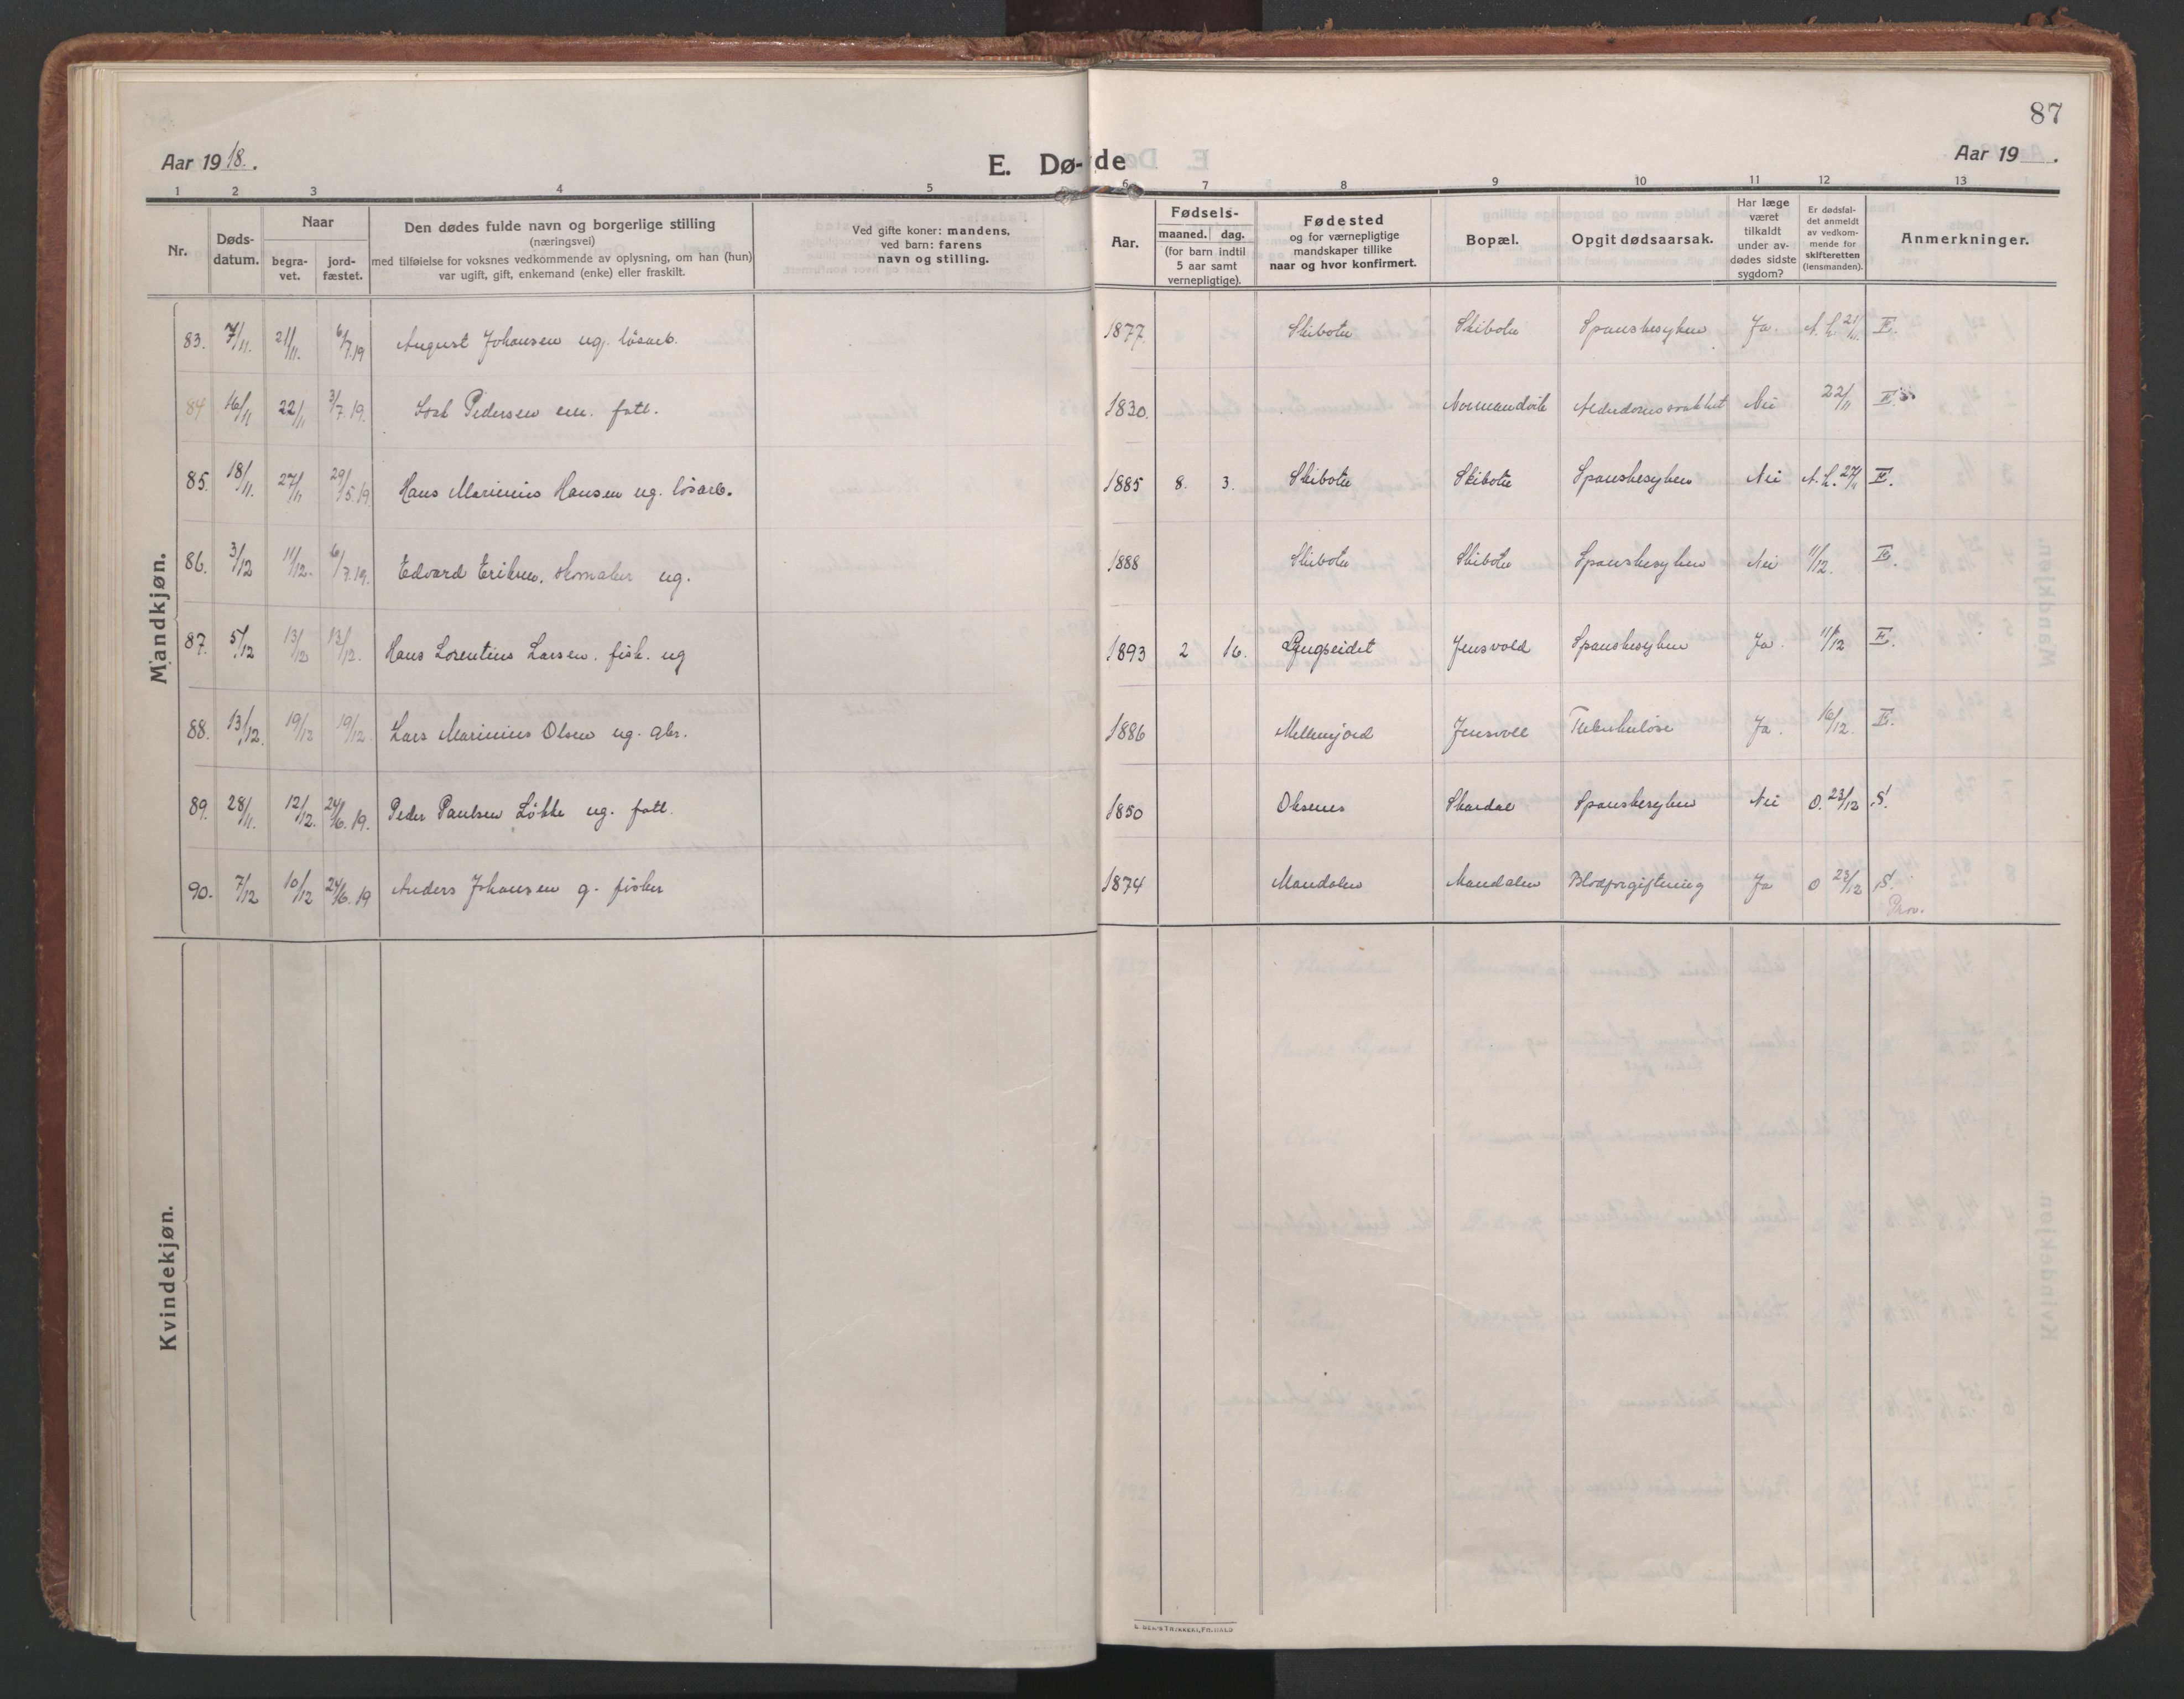 87
Aar 1918.
E. Dø-de
Aar 19 .
1 2 3 4 5 6 7 8 9 10 11 12 13
Nr.
Døds-
datum.
Naar
begra-
vet.
jord-
fæstet.
Den dødes fulde navn og borgerlige stilling
(næringsvei)
med tilføielse for voksnes vedkommende av oplysning, om han (hun)
var ugift, gift, enkemand (enke) eller fraskilt.
Ved gifte koner: mandens,
ved barn: farens
navn og stilling.
Aar.
Fødsels-
maaned. dag.
(for barn indtil
5 aar samt
vernepligtige).
Fødested
og for værnepligtige
mandskaper tillike
naar og hvor konfirmert.
Bopæl.
Opgit dødsaarsak.
Har læge
været
tilkaldt
under av-
dødes sidste
sygdom?
Er dødsfal-
det anmeldt
av vedkom-
mende for
skifteretten
(lensmanden).
Anmerkninger.
Mandkjøn.
83. 7/11. 21/11. 6/7.19 August Johansen ug. løsarb. 1877. Skibotn Skibotn Spanskesyken Ja. A.L. 21/11. E.
84 16/11 22/11 3/7.19. Pedersen em. fatt. 1830. Normandvik Alderdomssvakhet Nei 22/11 E.
85. 18/11. 27/11 29/5.19. Hans Marinius Hansen ug. løsarb. 1885 8. 3. Skibotn Skibotn Spanskesyken Nei A.L. 27/11 E.
86. 3/12 11/12. 6/7.19. Edvard Eriksen, skomaker ug. 1888 Skibotn Skibotn Spanskesyken Nei 11/12. E.
87. 5/12 13/12 13/12. Hans Lorentius Larsen. fisk. ug 1893 2 16. Lyngseidet Jensvold Spanskesyken Ja. 11/12 E.
88. 13/12. 19/12 19/12. Lars Marinius Olsen ug. gbr. 1886 Jensvoll Tuberkuløse Ja. 16/12. E.
89. 28/11. 12/12. 24/6.19. Peder Paulsen Løkke ug. fatt. 1850 Oksenes Skardal Spanskesyken Nei O. 23/12 S.
90. 7/12 10/12 24/6.19 Anders Johansen g. fisker 1874 Mandalen Mandalen Blodforgiftning Ja O 23/12 S.
Prov.
Kvindekjøn.